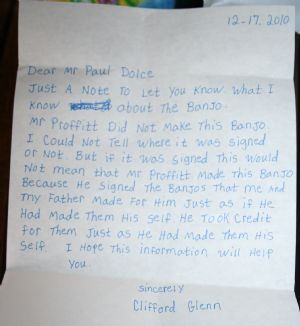 12-17. 2010
Dear Mr Paul Dolce
Just A Note To Let You Know What I
know about The Banjo.
Mr Proffitt Did Not Make This Banjo.
I Could Not Tell where it was signed
or Not. But if it was signed This would
Not mean that Mr Proffitt Made This Banjo
Because He Signed The Banjos That me and
my Father Made For Him Just as if He
Had Made Them His self. He Took Credit
for Them Just as He Had Made Them His
self. I Hope This information will Help
You.
sincerely
Clifford Glenn